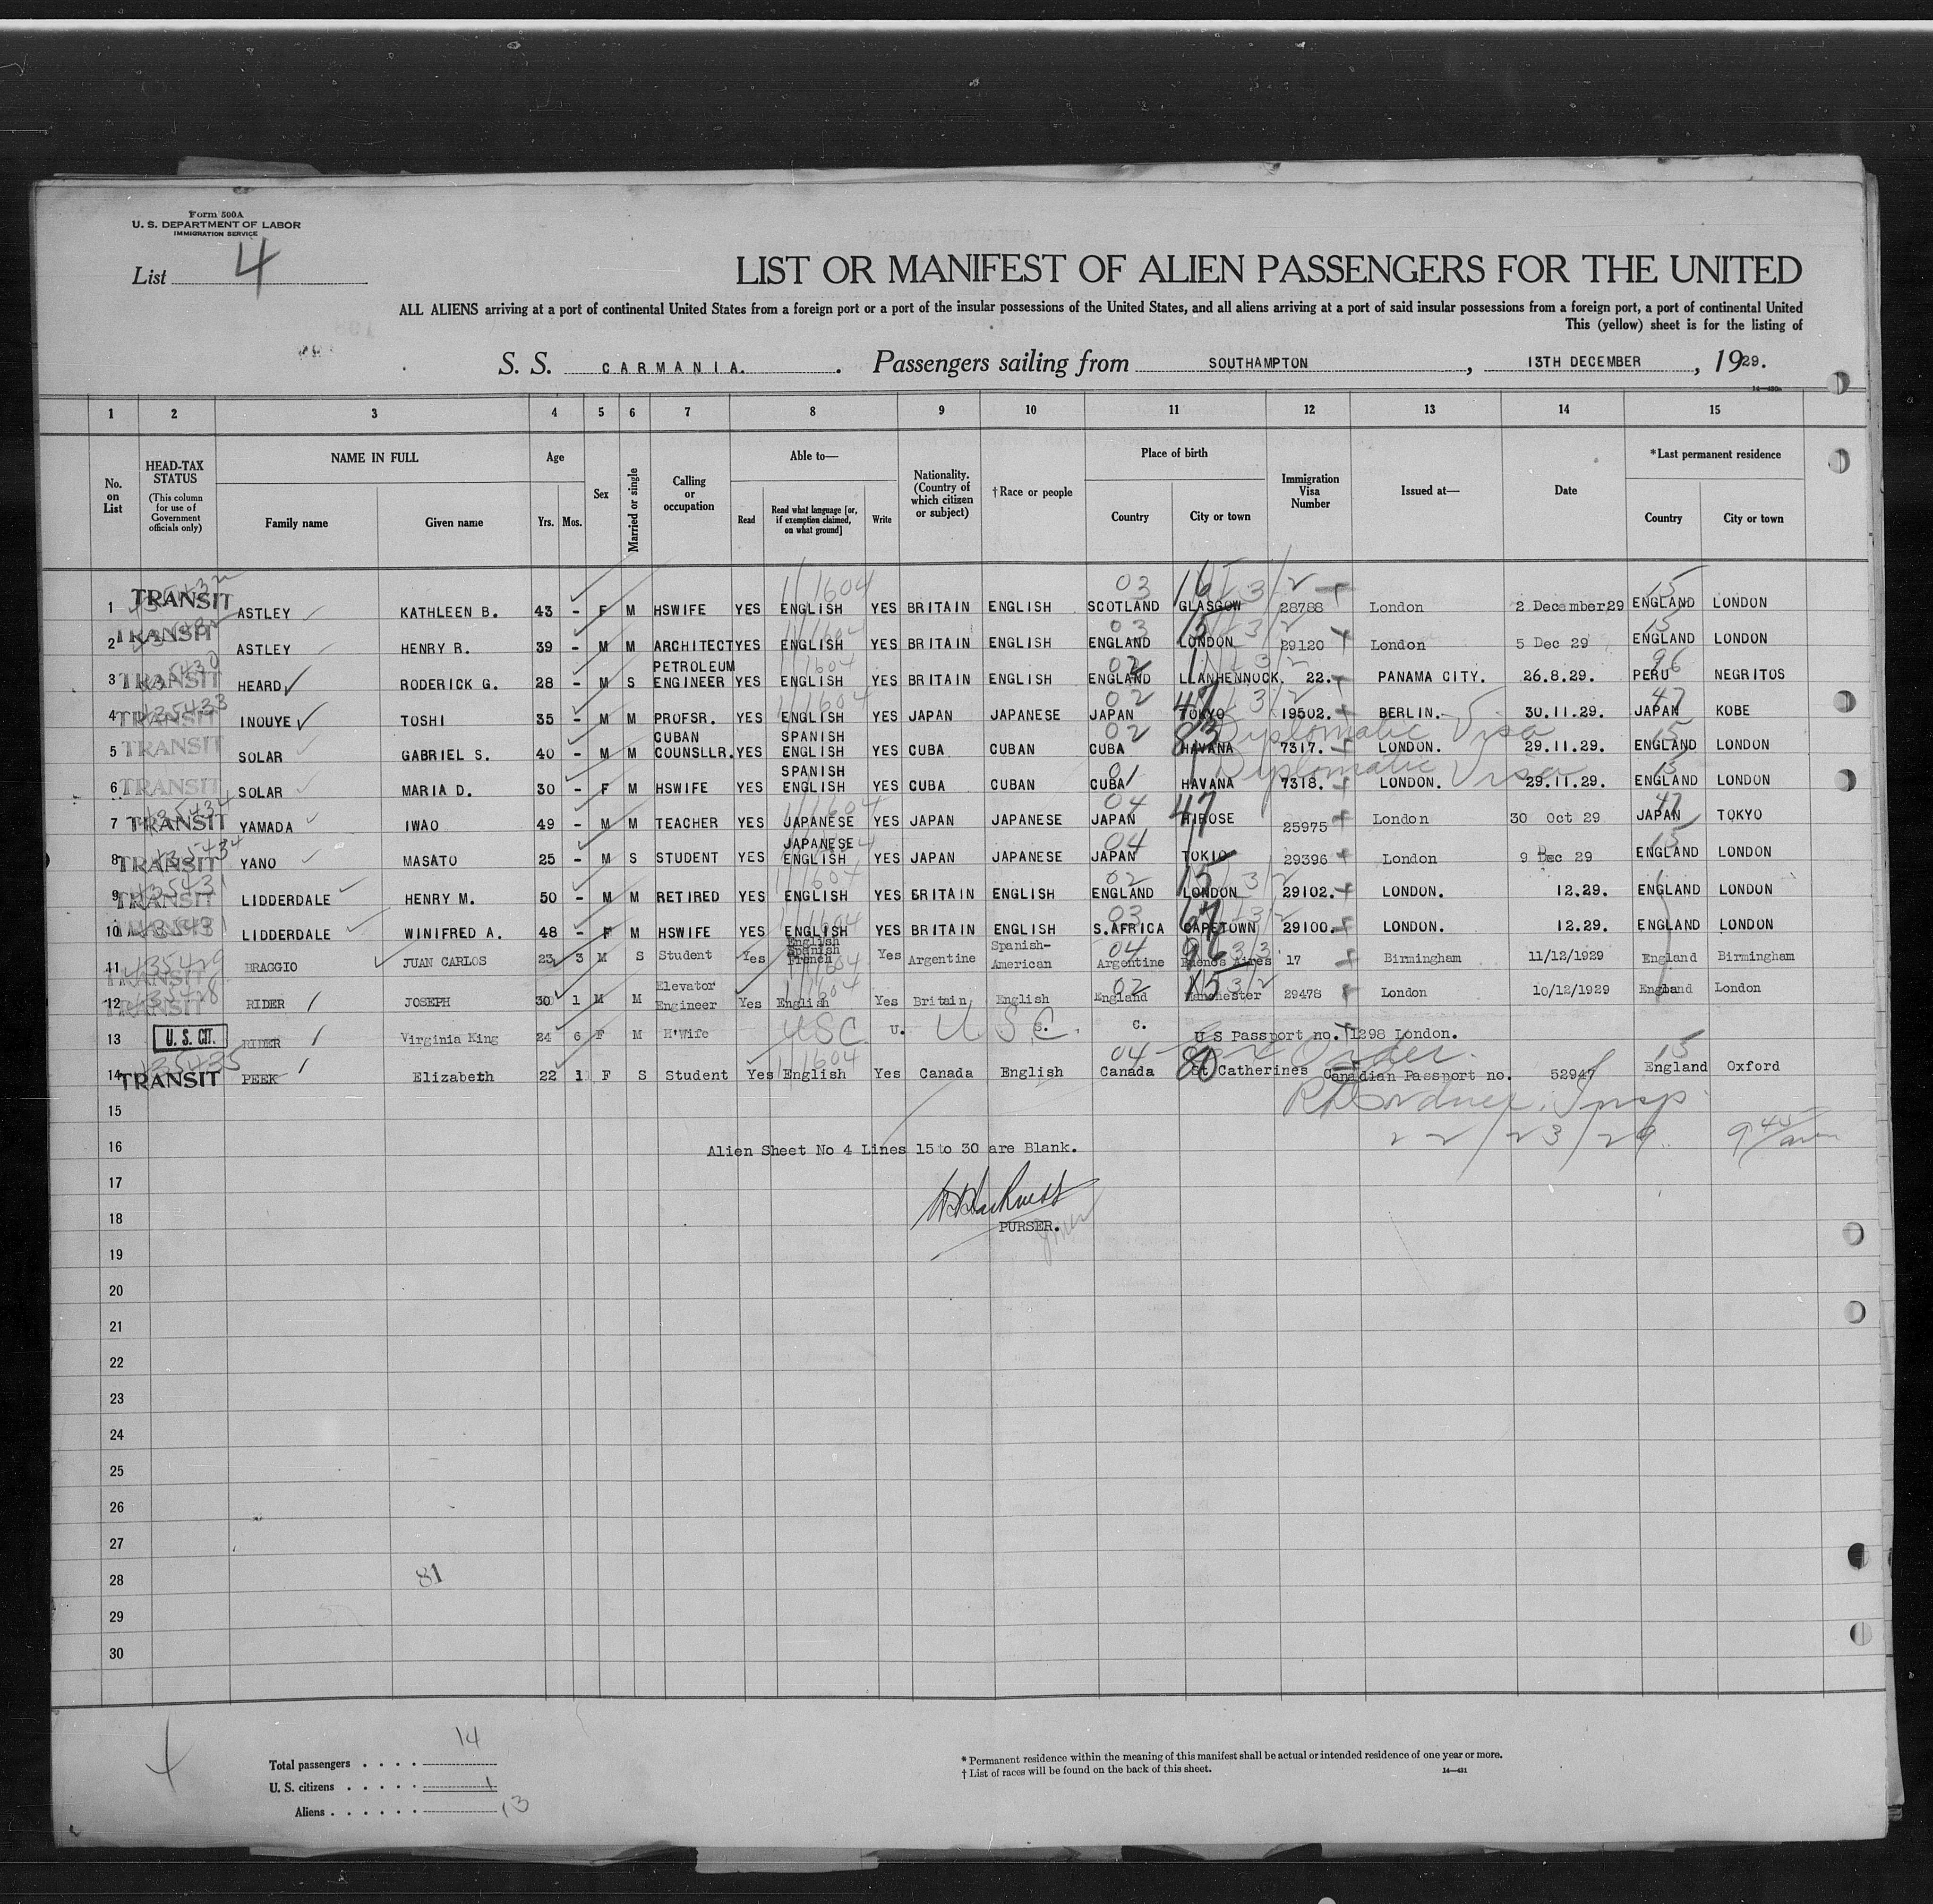 Form 500A
U. S. DEPARTMENT OF LABOR
IMMIGRATION SERVICE
List 4
LIST OR MANIFEST OF ALIEN PASSENGERS FOR THE UNITED
ALL ALIENS arriving at a port of continental United States from a foreign port or a port of the insular possessions of the United States, and all aliens arriving at a port of said insular possessions from a foreign port, a port of continental United
This (yellow) sheet is for the listing of
S. S. CARMANIA. Passengers sailing from SOUTHAMPTON, 13TH DECEMBER, 1929.
1 2 3 4 5 6 7 8 9 10 11 12 13 14 15
No. on List
HEAD-TAX STATUS (This column for use of Government officials only)
NAME IN FULL Family name Given name
Age Yrs. Mos.
Sex
Married or single
Calling or occupation
Able to— Read Read what language [or, if exemption claimed, on what ground] Write
Nationality. (Country of which citizen or subject)
†Race or people
Place of birth Country City or town
Immigration Visa Number
Issued at—
Date
*Last permanent residence Country City or town
1 TRANSIT ASTLEY KATHLEEN B. 43 - F M HSWIFE YES ENGLISH YES BRITAIN ENGLISH SCOTLAND GLASGOW 28788 London 2 December 29 ENGLAND LONDON
2 TRANSIT ASTLEY HENRY R. 39 - M M ARCHITECT YES ENGLISH YES BRITAIN ENGLISH ENGLAND LONDON 29120 London 5 Dec 29 ENGLAND LONDON
3 TRANSIT HEARD RODERICK G. 28 - M S PETROLEUM ENGINEER YES ENGLISH YES BRITAIN ENGLISH ENGLAND LLANHENNOCK. 22. PANAMA CITY. 26.8.29. PERU NEGRITOS
4 TRANSIT INOUYE TOSHI 35 - M M PROFSR. YES ENGLISH YES JAPAN JAPANESE JAPAN TOKYO 19502. BERLIN. 30.11.29. JAPAN KOBE
5 TRANSIT SOLAR GABRIEL S. 40 - M M CUBAN COUNSLLR. YES SPANISH ENGLISH YES CUBA CUBAN CUBA HAVANA 7317. LONDON. 29.11.29. ENGLAND LONDON
Diplomatic Visa
6 TRANSIT SOLAR MARIA D. 30 - F M HSWIFE YES SPANISH ENGLISH YES CUBA CUBAN CUBA HAVANA 7318. LONDON. 29.11.29. ENGLAND LONDON
Diplomatic Visa
7 TRANSIT YAMADA IWAO 49 - M M TEACHER YES JAPANESE YES JAPAN JAPANESE JAPAN HIROSE 25975 London 30 Oct 29 JAPAN TOKYO
8 TRANSIT YANO MASATO 25 - M S STUDENT YES JAPANESE ENGLISH YES JAPAN JAPANESE JAPAN TOKIO 29396 London 9 Dec 29 ENGLAND LONDON
9 TRANSIT LIDDERDALE HENRY M. 50 - M M RETIRED YES ENGLISH YES BRITAIN ENGLISH ENGLAND LONDON 29102. LONDON. 12.29. ENGLAND LONDON
10 LIDDERDALE WINIFRED A. 48 - F M HSWIFE YES ENGLISH YES BRITAIN ENGLISH S.AFRICA CAPETOWN 29100. LONDON. 12.29. ENGLAND LONDON
11 TRANSIT BRAGGIO JUAN CARLOS 23 3 M S Student Yes English Spanish French Yes Argentine Spanish-American Argentine Buenos Aires 17 Birmingham 11/12/1929 England Birmingham
12 TRANSIT RIDER JOSEPH 30 1 M M Elevator Engineer Yes English Yes Britain English England Manchester 29478 London 10/12/1929 England London
13 U. S. CIT. RIDER Virginia King 24 6 F M H'Wife USC U. U. S. C. S. C. U S Passport no. 1298 London.
14 TRANSIT PEEK Elizabeth 22 1 F S Student Yes English Yes Canada English Canada St Catherines Canadian Passport no. 52947 England Oxford
15
16 Alien Sheet No 4 Lines 15 to 30 are Blank.
17
18 PURSER.
19
20
21
22
23
24
25
26
27
28 81
29
30
Total passengers . . . . 14
U. S. citizens . . . . . 1
Aliens . . . . . . 13
* Permanent residence within the meaning of this manifest shall be actual or intended residence of one year or more.
† List of races will be found on the back of this sheet.
14—431